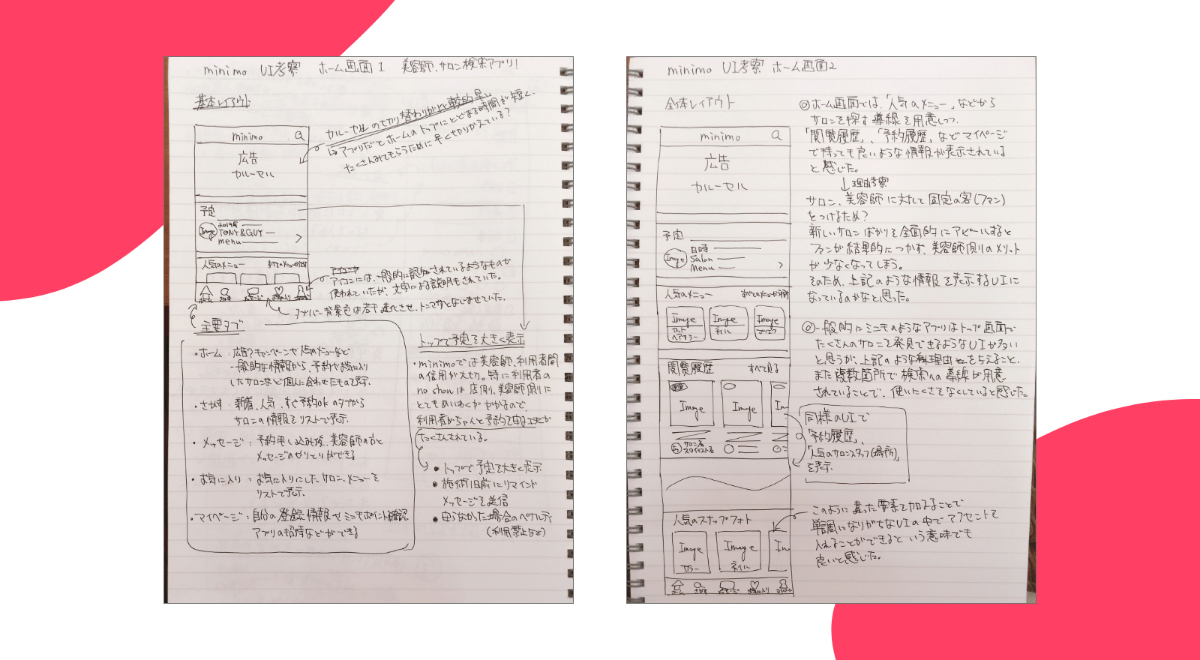 minimo UI考察 ホーム画面1 美容師、サロン検索アプリ!
基本レイアウト
カルーセルの切り替わりが比較的早い
↳アプリだとホームのトップにとどまる時間が短く、
たくさんみてもらうために早く切りかえている?
minimo
広告
カルーセル
予定
Image
TONY&GUY
menu
人気のメニュー
アイコンには、一般的に認知されているようなものが
使われていたが、文字による説明もされていた。
タブバー背景色は若干透化させ、トンマナとなじませていた。
主要タブ
・ホーム:広告やキャンペーンや人気のメニューなど
一般的な情報から、予約やお気に入り
したサロンなど個人に合わせたもの表示
・さがす:新着、人気、すぐ予約okのタブから
サロンの情報をリストで表示。
・メッセージ:予約申し込み後、美容師の方と
メッセージのやりとりができる
・お気に入り:お気に入りにしたサロン、メニューを
リストで表示。
・マイページ:自分の登録情報やミニモポイント確認
アプリの招待などができる
トップで予定を大きく表示
・minimoでは美容師、利用者間
の信用が大切。特に利用者の
no showは店側、美容師側にと
とてもめいわくがかかるので
利用者がちゃんと予約を守る工夫が
たくさんされている。
・トップで予定を大きく表示
・施術1日前にリマインド
メッセージを送信
・守らなかった場合のペナルティ
(利用禁止など)
minimo UI考察 ホーム画面2
全体レイアウト
minimo
広告
カルーセル
予定
Image
日時
Salon
Menu
人気のメニュー
Image
Image
Image
ネイル
閲覧履歴 すべて見る
Image
Image
Im
人気のスナップフォト
Image
Image
Im
カラー
ネイル
◎ホーム画面では、「人気のメニュー」などから
サロンを探す導線を用意しつつ、
「閲覧履歴」、「予約履歴」などマイページ
で持っても良いような情報が表示されている
と感じた。
↓理由考察
サロン、美容師に対して固定の客(ファン)
をつけるため?
新しいサロンばかりを全面的にアピールすると
ファンが結果的につかず、美容師側のメリット
が少なくなってしまう。
そのため、上記のような情報を表示するUIに
なっているのかなと思った。
◎一般的にミニモのようなアプリはトップ画面で
たくさんのサロンを発見できるようなUIが多い
と思うが、上記のような理由をもとえること、
また複数箇所で検索への導線が用意
されていることで、使いにくさをなくしていると感じた。
同様のUIで
「予約履歴」、
「人気のサロンスタッフ(場所)」
を表示。
このように違った要素を加えることで
単調になりがちなUIの中でアクセントを
入れることができるという意味でも
良いと感じた。